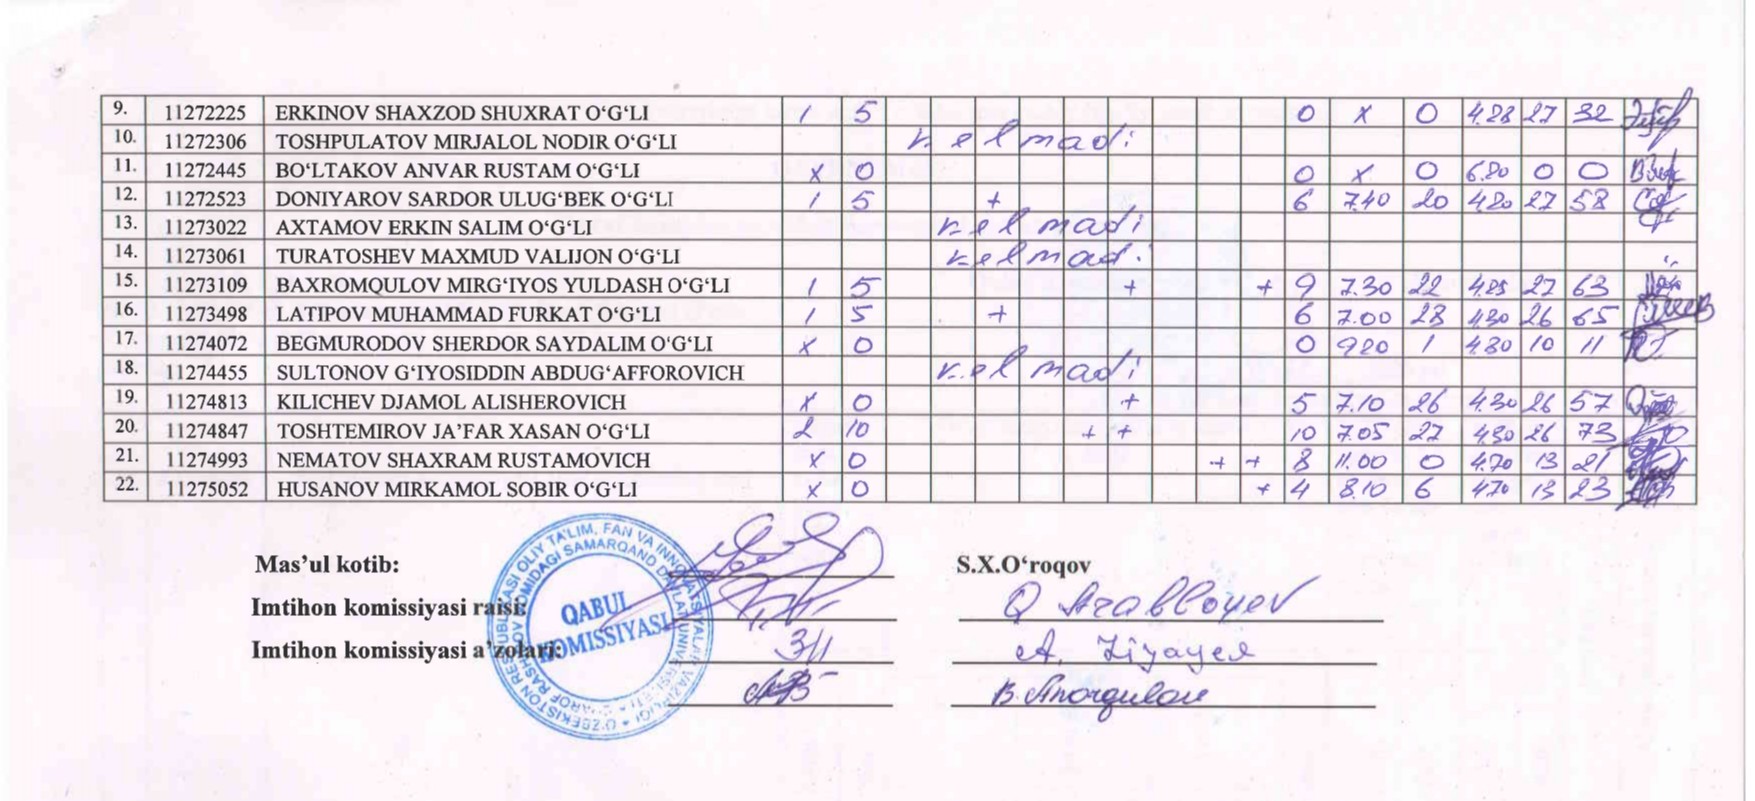 9. 11272225 ERKINOV SHAXZOD SHUXRAT O‘G‘LI 1 5 0 x 0 4.28 27 32
10. 11272306 TOSHPULATOV MIRJALOL NODIR O‘G‘LI kelmadi
11. 11272445 BO‘LTAKOV ANVAR RUSTAM O‘G‘LI x 0 0 x 0 6.80 0 0
12. 11272523 DONIYAROV SARDOR ULUG‘BEK O‘G‘LI 1 5 + 6 7.40 20 4.20 27 58
13. 11273022 AXTAMOV ERKIN SALIM O‘G‘LI kelmadi
14. 11273061 TURATOSHEV MAXMUD VALIJON O‘G‘LI kelmadi
15. 11273109 BAXROMQULOV MIRG‘IYOS YULDASH O‘G‘LI 1 5 + + 9 7.30 22 4.25 27 63
16. 11273498 LATIPOV MUHAMMAD FURKAT O‘G‘LI 1 5 + 6 7.00 28 4.30 26 65
17. 11274072 BEGMURODOV SHERDOR SAYDALIM O‘G‘LI x 0 0 920 1 4.80 10 11
18. 11274455 SULTONOV G‘IYOSIDDIN ABDUG‘AFFOROVICH kelmadi
19. 11274813 KILICHEV DJAMOL ALISHEROVICH x 0 + 5 7.10 26 4.30 26 57
20. 11274847 TOSHTEMIROV JA’FAR XASAN O‘G‘LI 2 10 + + 10 7.05 27 430 26 73
21. 11274993 NEMATOV SHAXRAM RUSTAMOVICH x 0 + + 8 11.00 0 4.70 13 21
22. 11275052 HUSANOV MIRKAMOL SOBIR O‘G‘LI x 0 + 4 8.10 6 470 13 23
Mas’ul kotib: S.X.O‘roqov
Imtihon komissiyasi raisi: Q Arabboyev
Imtihon komissiyasi a’zolari: A. Ziyayev
B. Anorqulov
QABUL
KOMISSIYASI